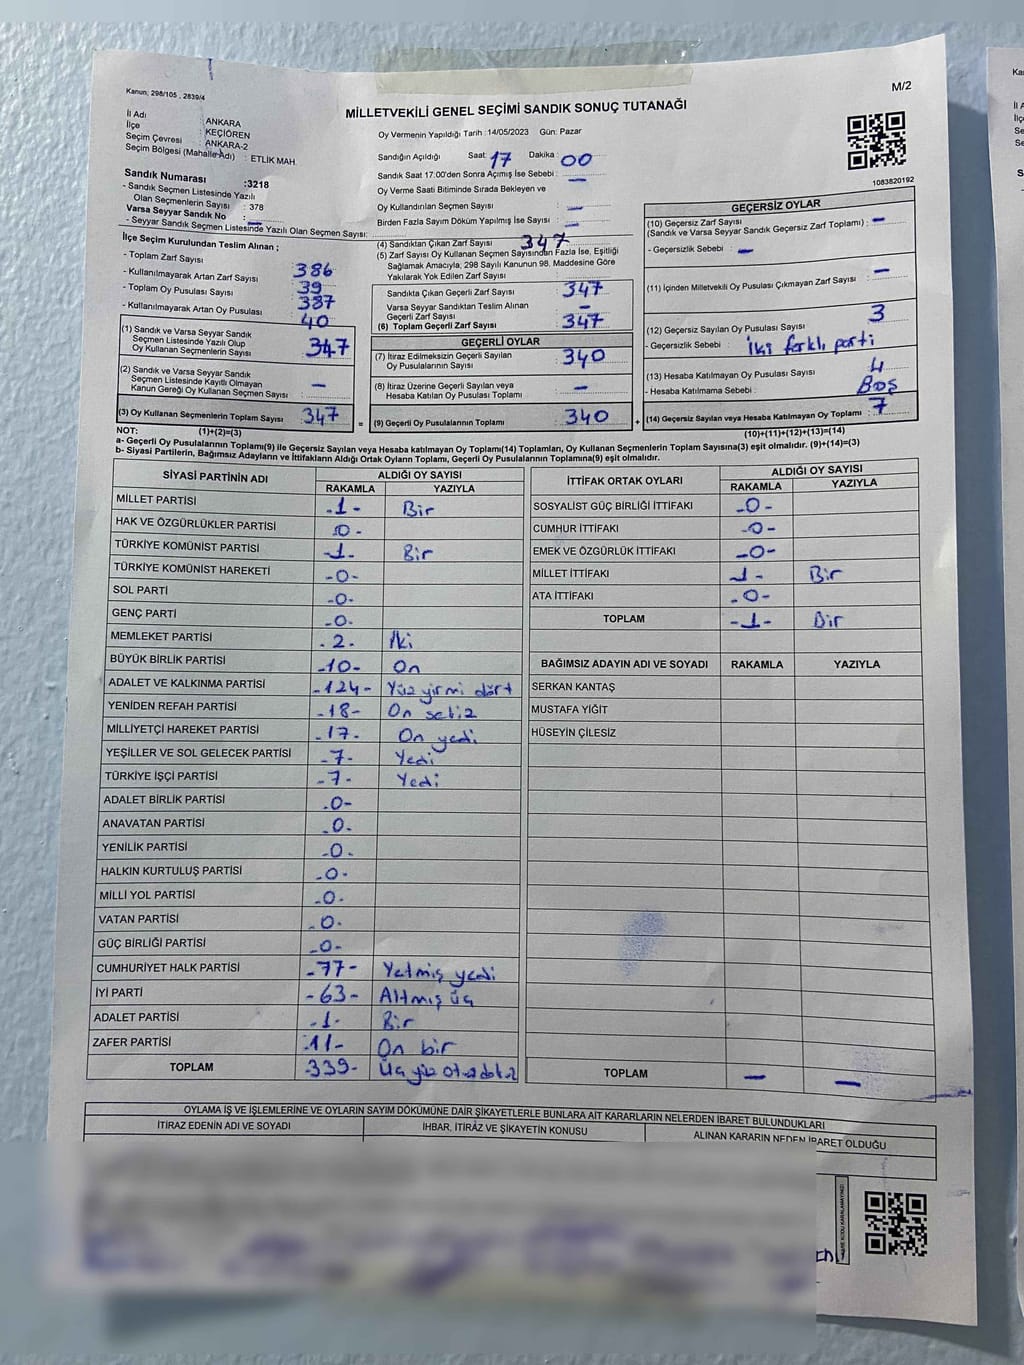 Kanun, 298/105 , 2839/4
M/2
MİLLETVEKİLİ GENEL SEÇİMİ SANDIK SONUÇ TUTANAĞI
İl Adı : ANKARA
İlçe : KEÇİÖREN
Seçim Çevresi : ANKARA-2
Seçim Bölgesi (Mahalle Adı) : ETLİK MAH.
Sandık Numarası :3218
- Sandık Seçmen Listesinde Yazılı
Olan Seçmenlerin Sayısı : 378
Varsa Seyyar Sandık No : -
- Seyyar Sandık Seçmen Listesinde Yazılı Olan Seçmen Sayısı:
İlçe Seçim Kurulundan Teslim Alınan ;
- Toplam Zarf Sayısı : 386
- Kullanılmayarak Artan Zarf Sayısı : 39
- Toplam Oy Pusulası Sayısı : 387
- Kullanılmayarak Artan Oy Pusulası : 40
(1) Sandık ve Varsa Seyyar Sandık
Seçmen Listesinde Yazılı Olup
Oy Kullanan Seçmenlerin Sayısı : 347
(2) Sandık ve Varsa Seyyar Sandık
Seçmen Listesinde Kayıtlı Olmayan
Kanun Gereği Oy Kullanan Seçmen Sayısı : -
(3) Oy Kullanan Seçmenlerin Toplam Sayısı : 347
Oy Vermenin Yapıldığı Tarih :14/05/2023 Gün: Pazar
Sandığın Açıldığı Saat: 17 Dakika : 00
Sandık Saat 17:00'den Sonra Açılmış İse Sebebi : -
Oy Verme Saati Bitiminde Sırada Bekleyen ve
Oy Kullandırılan Seçmen Sayısı : -
Birden Fazla Sayım Döküm Yapılmış İse Sayısı : -
(4) Sandıktan Çıkan Zarf Sayısı : 347
(5) Zarf Sayısı Oy Kullanan Seçmen Sayısından Fazla İse, Eşitliği
Sağlamak Amacıyla; 298 Sayılı Kanunun 98. Maddesine Göre
Yakılarak Yok Edilen Zarf Sayısı :
Sandıkta Çıkan Geçerli Zarf Sayısı : 347
Varsa Seyyar Sandıktan Teslim Alınan
Geçerli Zarf Sayısı : -
(6) Toplam Geçerli Zarf Sayısı : 347
GEÇERLİ OYLAR
(7) İtiraz Edilmeksizin Geçerli Sayılan
Oy Pusulalarının Sayısı : 340
(8) İtiraz Üzerine Geçerli Sayılan veya
Hesaba Katılan Oy Pusulası Toplamı : -
= (9) Geçerli Oy Pusulalarının Toplamı : 340 +
1083820192
GEÇERSİZ OYLAR
(10) Geçersiz Zarf Sayısı
(Sandık ve Varsa Seyyar Sandık Geçersiz Zarf Toplamı) : -
- Geçersizlik Sebebi : -
(11) İçinden Milletvekili Oy Pusulası Çıkmayan Zarf Sayısı : -
(12) Geçersiz Sayılan Oy Pusulası Sayısı : 3
- Geçersizlik Sebebi : İki farklı parti
(13) Hesaba Katılmayan Oy Pusulası Sayısı : 4
- Hesaba Katılmama Sebebi : Boş
(14) Geçersiz Sayılan veya Hesaba Katılmayan Oy Toplamı : 7
NOT: (1)+(2)=(3) (10)+(11)+(12)+(13)=(14)
a- Geçerli Oy Pusulalarının Toplamı(9) ile Geçersiz Sayılan veya Hesaba katılmayan Oy Toplamı(14) Toplamları, Oy Kullanan Seçmenlerin Toplam Sayısına(3) eşit olmalıdır. (9)+(14)=(3)
b- Siyasi Partilerin, Bağımsız Adayların ve İttifakların Aldığı Ortak Oyların Toplamı, Geçerli Oy Pusulalarının Toplamına(9) eşit olmalıdır.
SİYASİ PARTİNİN ADI ALDIĞI OY SAYISI
RAKAMLA YAZIYLA
MİLLET PARTİSİ -1- Bir
HAK VE ÖZGÜRLÜKLER PARTİSİ -0-
TÜRKİYE KOMÜNİST PARTİSİ -1- Bir
TÜRKİYE KOMÜNİST HAREKETİ -0-
SOL PARTİ -0-
GENÇ PARTİ -0-
MEMLEKET PARTİSİ -2- İki
BÜYÜK BİRLİK PARTİSİ -10- On
ADALET VE KALKINMA PARTİSİ -124- Yüz yirmi dört
YENİDEN REFAH PARTİSİ -18- On sekiz
MİLLİYETÇİ HAREKET PARTİSİ -17- On yedi
YEŞİLLER VE SOL GELECEK PARTİSİ -7- Yedi
TÜRKİYE İŞÇİ PARTİSİ -7- Yedi
ADALET BİRLİK PARTİSİ -0-
ANAVATAN PARTİSİ -0-
YENİLİK PARTİSİ -0-
HALKIN KURTULUŞ PARTİSİ -0-
MİLLİ YOL PARTİSİ -0-
VATAN PARTİSİ -0-
GÜÇ BİRLİĞİ PARTİSİ -0-
CUMHURİYET HALK PARTİSİ -77- Yetmiş yedi
İYİ PARTİ -63- Altmış üç
ADALET PARTİSİ -1- Bir
ZAFER PARTİSİ -11- On bir
TOPLAM -339- Üç yüz otuz dokuz
İTTİFAK ORTAK OYLARI ALDIĞI OY SAYISI
RAKAMLA YAZIYLA
SOSYALİST GÜÇ BİRLİĞİ İTTİFAKI -0-
CUMHUR İTTİFAKI -0-
EMEK VE ÖZGÜRLÜK İTTİFAKI -0-
MİLLET İTTİFAKI -1- Bir
ATA İTTİFAKI -0-
TOPLAM -1- Bir
BAĞIMSIZ ADAYIN ADI VE SOYADI RAKAMLA YAZIYLA
SERKAN KANTAŞ
MUSTAFA YİĞİT
HÜSEYİN ÇİLESİZ
TOPLAM - -
OYLAMA İŞ VE İŞLEMLERİNE VE OYLARIN SAYIM DÖKÜMÜNE DAİR ŞİKAYETLERLE BUNLARA AİT KARARLARIN NELERDEN İBARET BULUNDUKLARI
İTİRAZ EDENİN ADI VE SOYADI İHBAR, İTİRAZ VE ŞİKAYETİN KONUSU ALINAN KARARIN NEDEN İBARET OLDUĞU